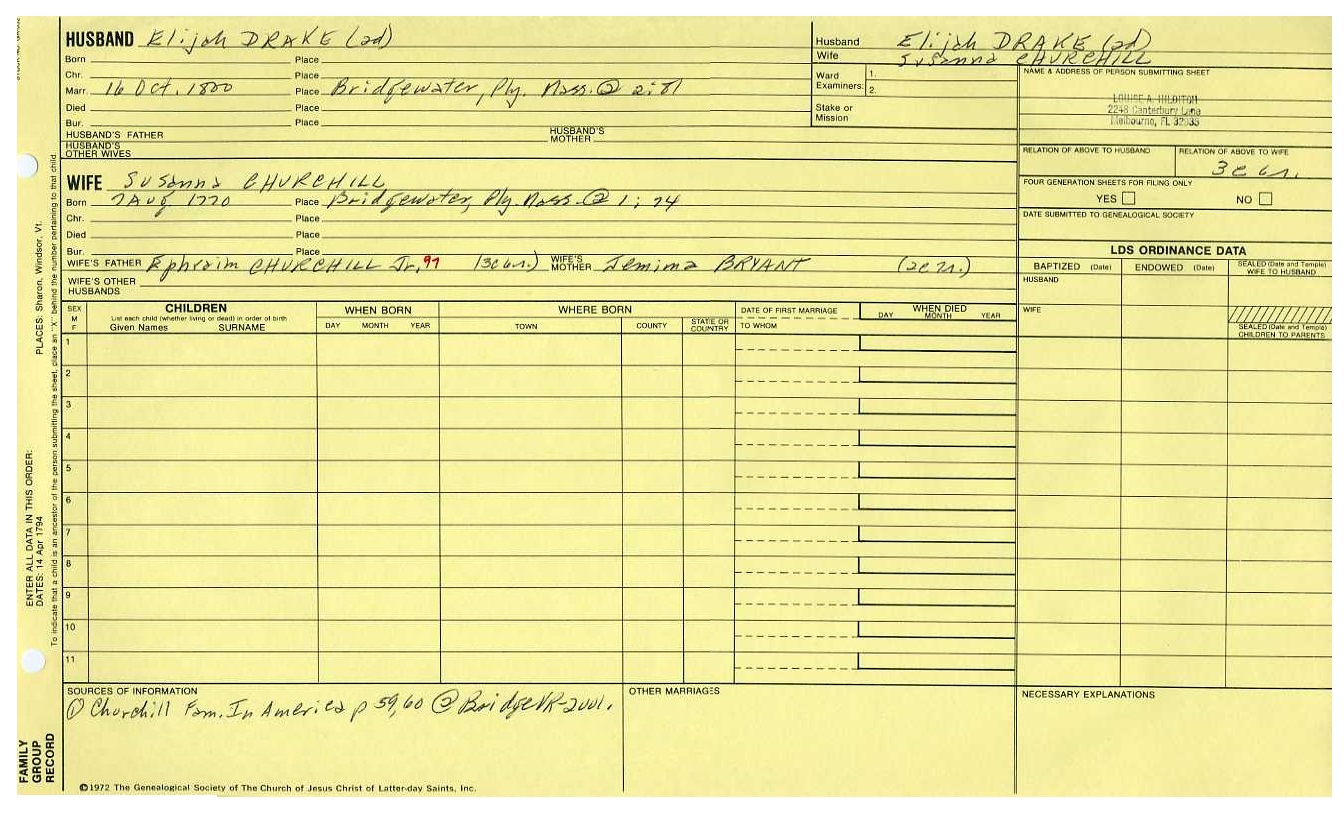 HUSBAND Elijah DRAKE (2d)
Born Place
Chr. Place
Marr. 16 Oct. 1800 Place Bridgewater, Ply. Mass. @ 2:81
Died Place
Bur. Place
HUSBAND'S FATHER HUSBAND'S MOTHER
HUSBAND'S OTHER WIVES
Husband Elijah DRAKE (2d)
Wife Susanna CHURCHILL
Ward Examiners: 1.
2.
Stake or Mission
NAME & ADDRESS OF PERSON SUBMITTING SHEET
LOUISE A. HILDITCH
2248 Canterbury Lane
Melbourne, FL 32935
RELATION OF ABOVE TO HUSBAND RELATION OF ABOVE TO WIFE
3c
FOUR GENERATION SHEETS FOR FILING ONLY
YES NO
DATE SUBMITTED TO GENEALOGICAL SOCIETY
WIFE Susanna CHURCHILL
Born 7 Aug 1770 Place Bridgewater, Ply. Mass. @ 1:74
Chr. Place
Died Place
Bur. Place
WIFE'S FATHER Ephraim CHURCHILL Jr. 97 WIFE'S MOTHER Jemima BRYANT
WIFE'S OTHER HUSBANDS
LDS ORDINANCE DATA
BAPTIZED (Date) ENDOWED (Date) SEALED (Date and Temple) WIFE TO HUSBAND
HUSBAND
WIFE
SEALED (Date and Temple) CHILDREN TO PARENTS
SEX M F
CHILDREN
List each child (whether living or dead) in order of birth
Given Names SURNAME
WHEN BORN
DAY MONTH YEAR
WHERE BORN
TOWN COUNTY STATE OR COUNTRY
DATE OF FIRST MARRIAGE
TO WHOM
WHEN DIED
DAY MONTH YEAR
1
2
3
4
5
6
7
8
9
10
11
SOURCES OF INFORMATION
① Churchill Fam. In America p 59,60 @ BridgeVR-2vol.
OTHER MARRIAGES
NECESSARY EXPLANATIONS
©1972 The Genealogical Society of The Church of Jesus Christ of Latter-day Saints, Inc.
FAMILY GROUP RECORD
ENTER ALL DATA IN THIS ORDER:
DATES: 14 Apr 1794
PLACES: Sharon, Windsor, Vt.
To indicate that a child is an ancestor of the person submitting the sheet, place an "X" behind the number pertaining to that child.